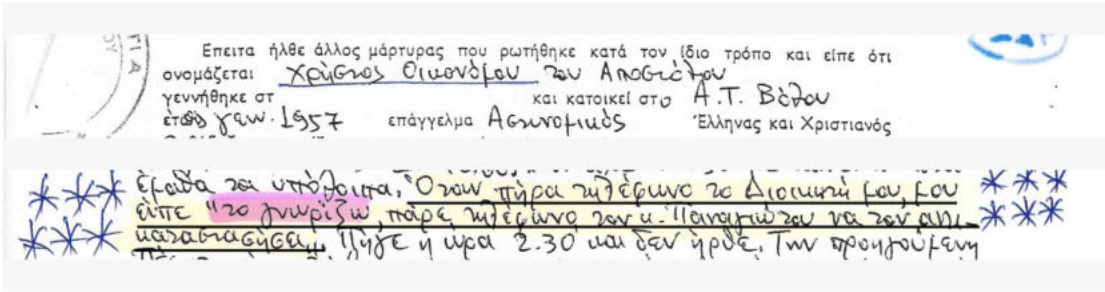 Επειτα ήλθε άλλος μάρτυρας που ρωτήθηκε κατά τον ίδιο τρόπο και είπε ότι
ονομάζεται Χρήστος Οικονόμου του Αποστόλου
γεννήθηκε στ και κατοικεί στο Α.Τ. Βόλου
έτος γεν. 1957 επάγγελμα Αστυνομικός Έλληνας και Χριστιανός
έμαθα τα υπόλοιπα. Όταν πήρα τηλέφωνο το Διοικητή μου, μου
είπε "το γνωρίζω, πάρε τηλέφωνο τον κ. Παναγιώτου να τον αντι-
καταστήσει„. Πήγε η ώρα 2.30' και δεν ήρθε. Την προηγούμενη